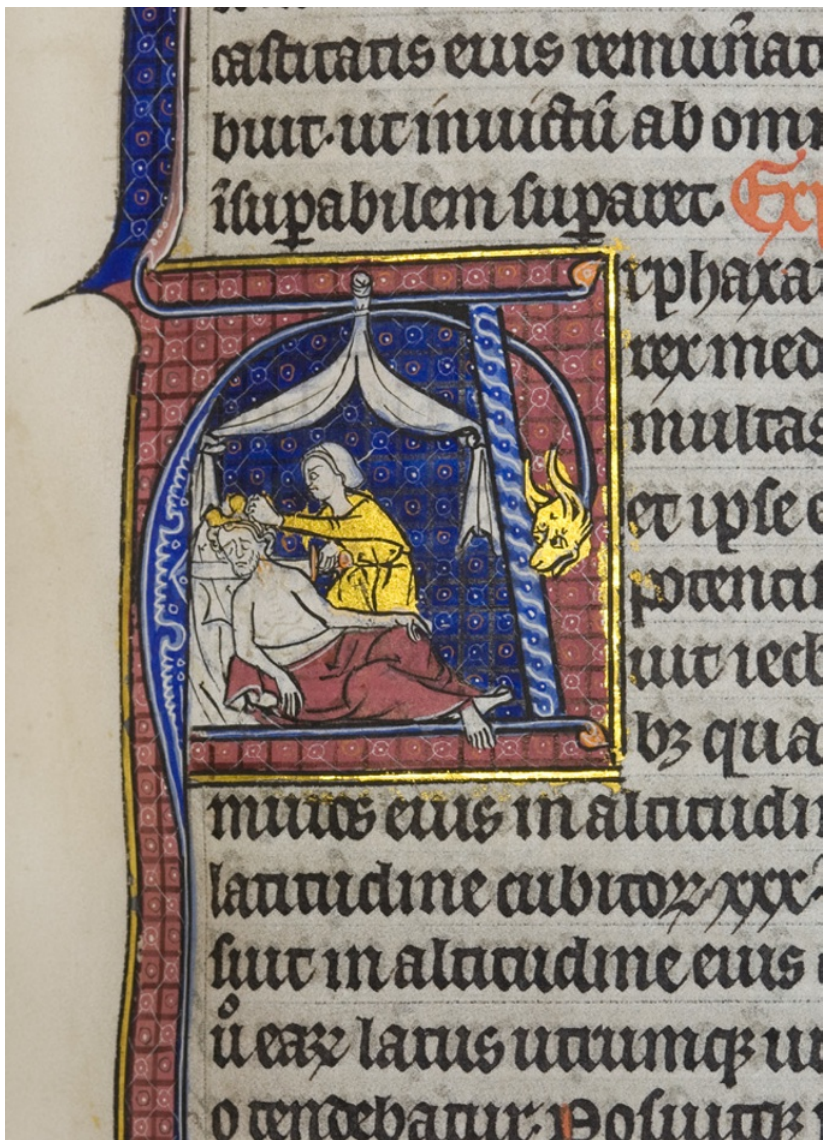 castitatis eius remun̄at
buit. ut inuictū ab om
īsuꝑabilem suꝑaret. Exp
rphaxa
rex med
multas
et ipse
potentis
uit iecb
bꝫ qua
muros eius in altitudin
latitudine cubitoꝝ xxx
suit in altitudine eius
uͦ eaꝝ latus utrumqꝫ
tendebatur. Posuitqꝫ